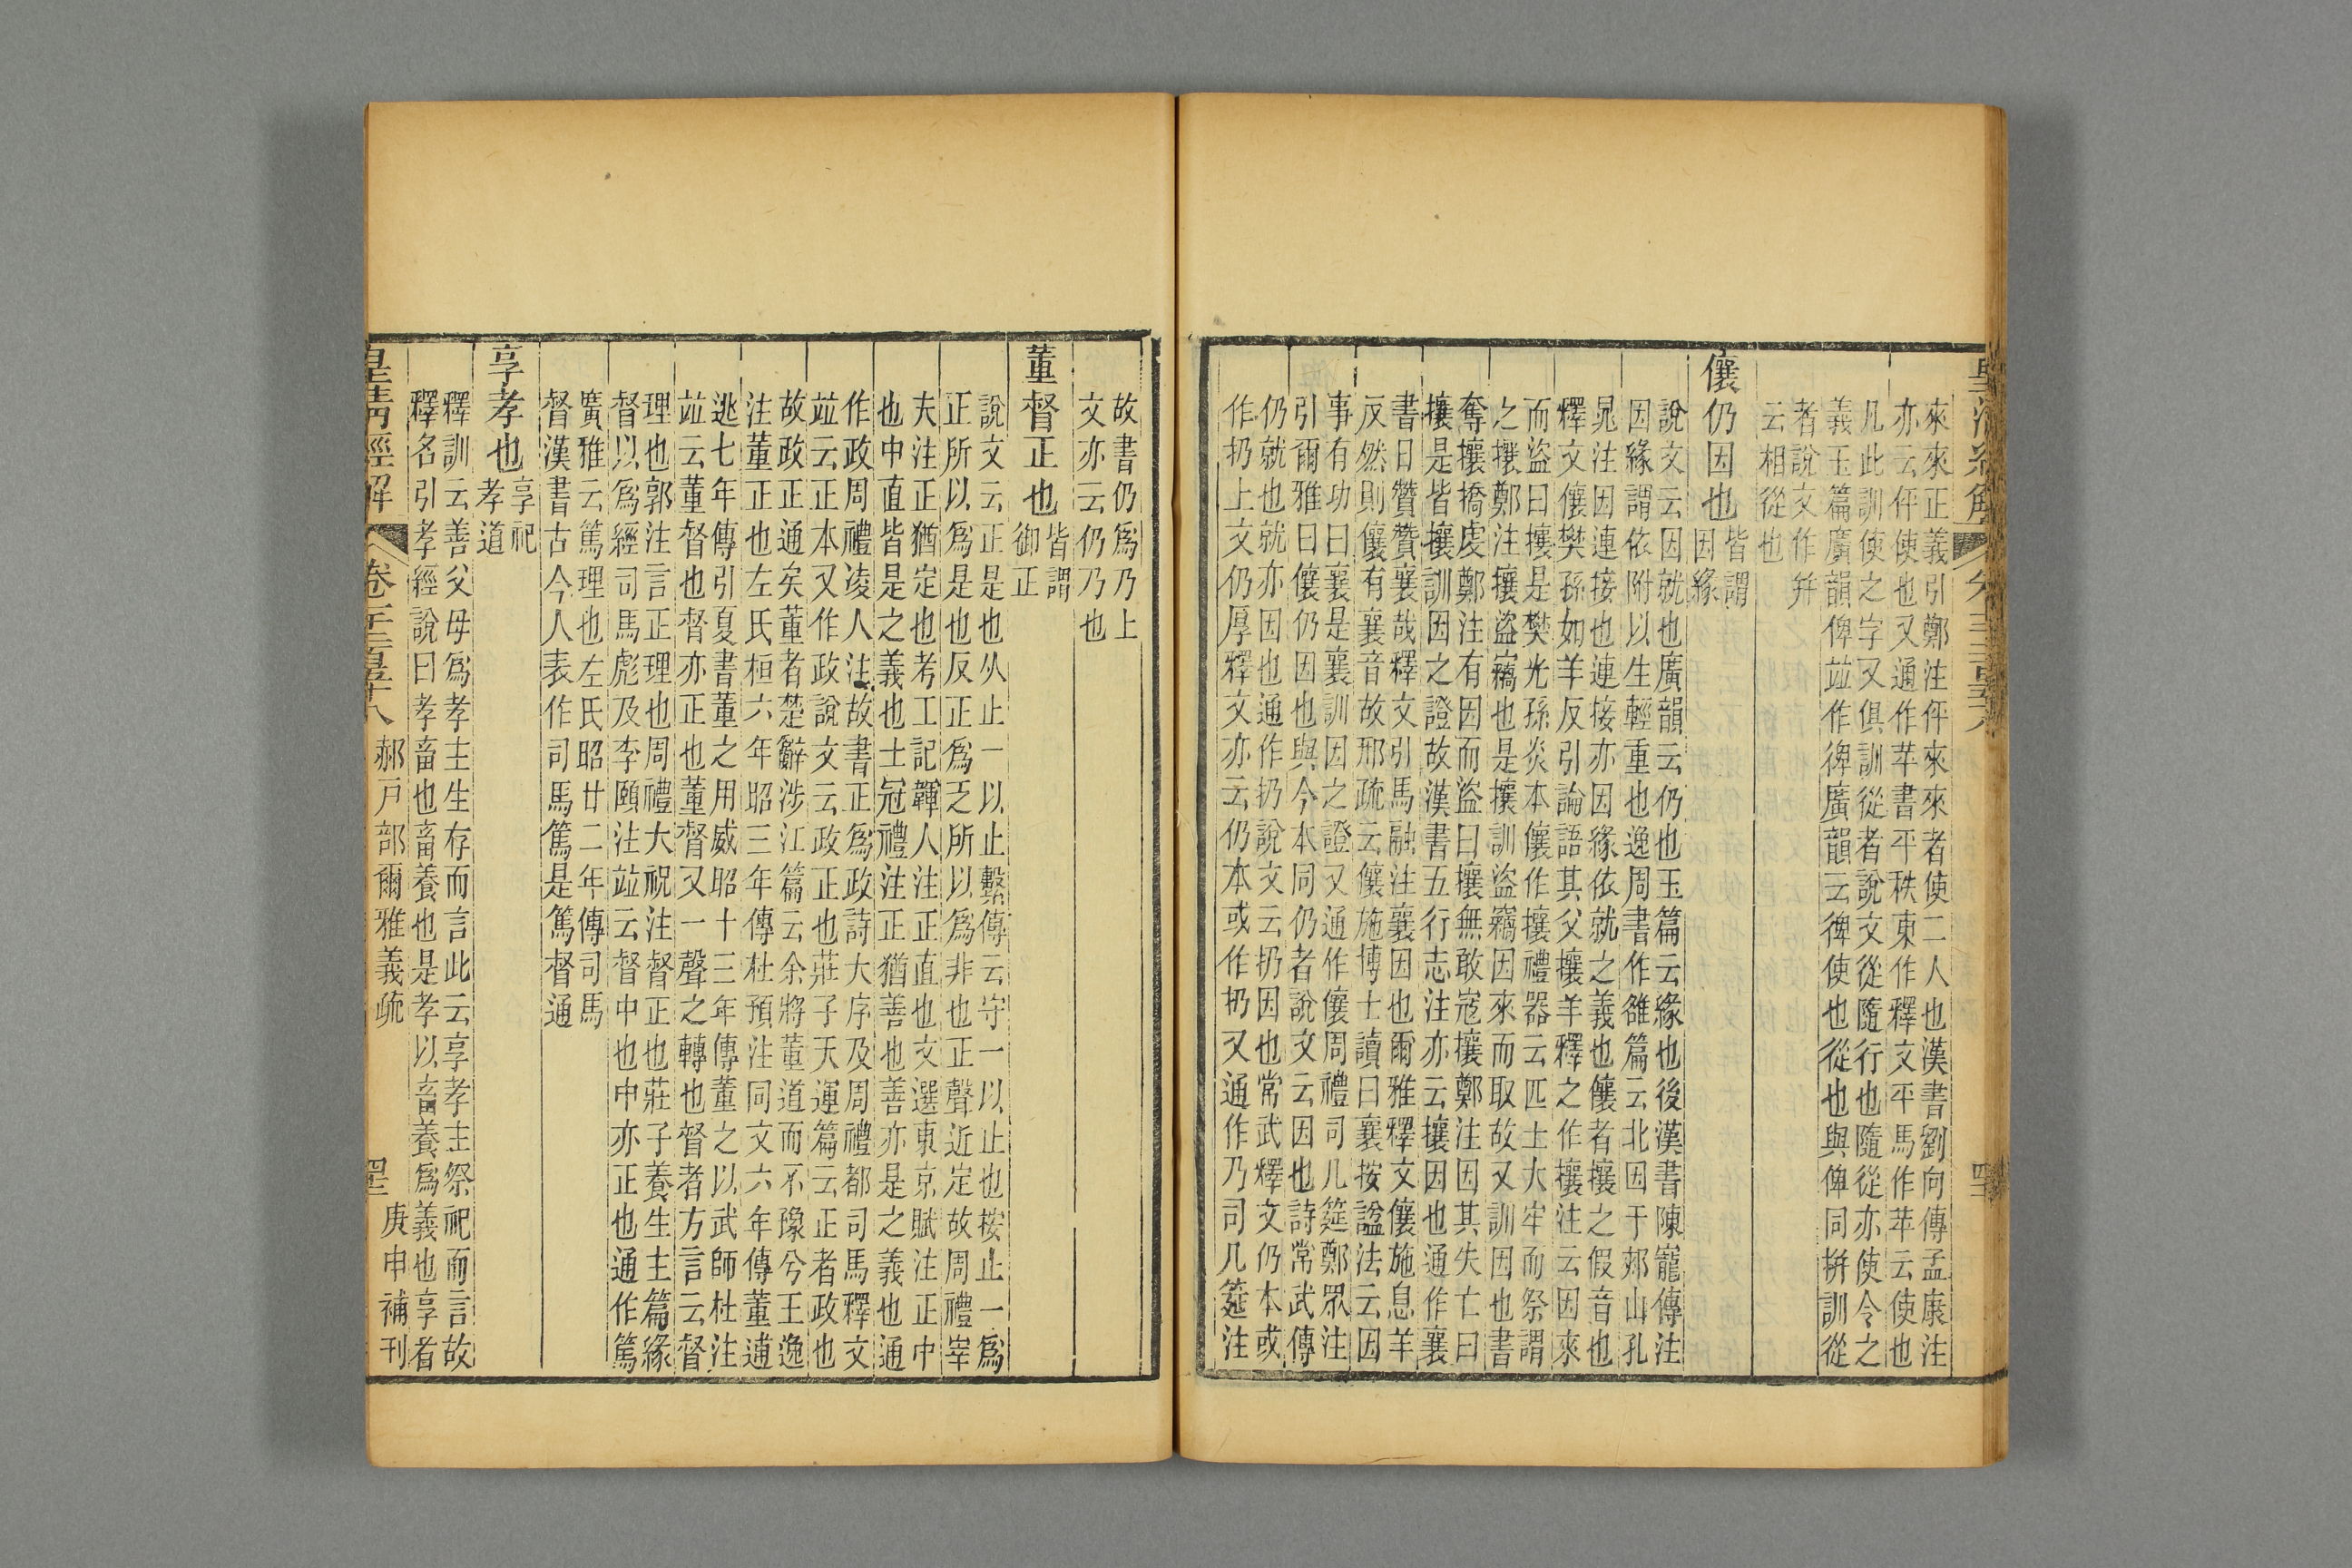 來來正義引鄭注伻來來者使二人也漢書劉向傳孟康注
亦云伻使也又通作苹書平秩東作釋文平馬作苹云使也
凡此訓使之字又俱訓從者說文從隨行也隨從亦使令之
義玉篇廣韻俾竝作裨廣韻云裨使也從也與俾同拼訓從
者說文作幷
云相從也
儴仍因也
皆謂
因緣
說文云因就也廣韻云仍也玉篇云緣也後漢書陳寵傳注
因緣謂依附以生輕重也逸周書作雒篇云北因于郟山孔
晁注因連接也連接亦因緣依就之義也儴者攘之假音也
釋文儴樊孫如羊反引論語其父攘羊釋之作攘注云因來
而盜曰攘是樊光孫炎本儴作攘禮器云匹士大牢而祭謂
之攘鄭注攘盜竊也是攘訓盜竊因來而取故又訓因也書
奪攘撟虔鄭注有因而盜曰攘無敢寇攘鄭注因其失亡曰
攘是皆攘訓因之證故漢書五行志注亦云攘因也通作襄
書曰贊贊襄哉釋文引馬融注襄因也爾雅釋文儴施息羊
反然則儴有襄音故邢疏云儴施博士讀曰襄按諡法云因
事有功曰襄是襄訓因之證又通作儴周禮司几筵鄭眾注
引爾雅曰儴仍因也與今本同仍者說文云因也詩常武傳
仍就也就亦因也通作扔說文云扔因也常武釋文仍本或
作扔上文仍厚釋文亦云仍本或作扔又通作乃司几筵注
故書仍爲乃上
文亦云仍乃也
董督正也
皆謂
御正
說文云正是也从止一以止繫傳云守一以止也按止一爲
正所以爲是也反正爲乏所以爲非也正聲近定故周禮宰
夫注正猶定也考工記韗人注正直也文選東京賦注正中
也中直皆是之義也士冠禮注正猶善也善亦是之義也通
作政周禮凌人注故書正爲政詩大序及周禮都司馬釋文
竝云正本又作政說文云政正也莊子天運篇云正者政也
故政正通矣董者楚辭涉江篇云余將董道而不豫兮王逸
注董正也左氏桓六年昭三年傳杜預注同文六年傳董逋
逃七年傳引夏書董之用威昭十三年傳董之以武師杜注
竝云董督也督亦正也董督又一聲之轉也督者方言云督
理也郭注言正理也周禮大祝注督正也莊子養生主篇緣
督以爲經司馬彪及李頤注竝云督中也中亦正也通作篤
廣雅云篤理也左氏昭廿二年傳司馬
督漢書古今人表作司馬篤是篤督通
享孝也
享祀
孝道
釋訓云善父母爲孝主生存而言此云享孝主祭祀而言故
釋名引孝經說曰孝畜也畜養也是孝以畜養爲義也享者
皇清經解
郝戶部爾雅義疏
庚申補刊